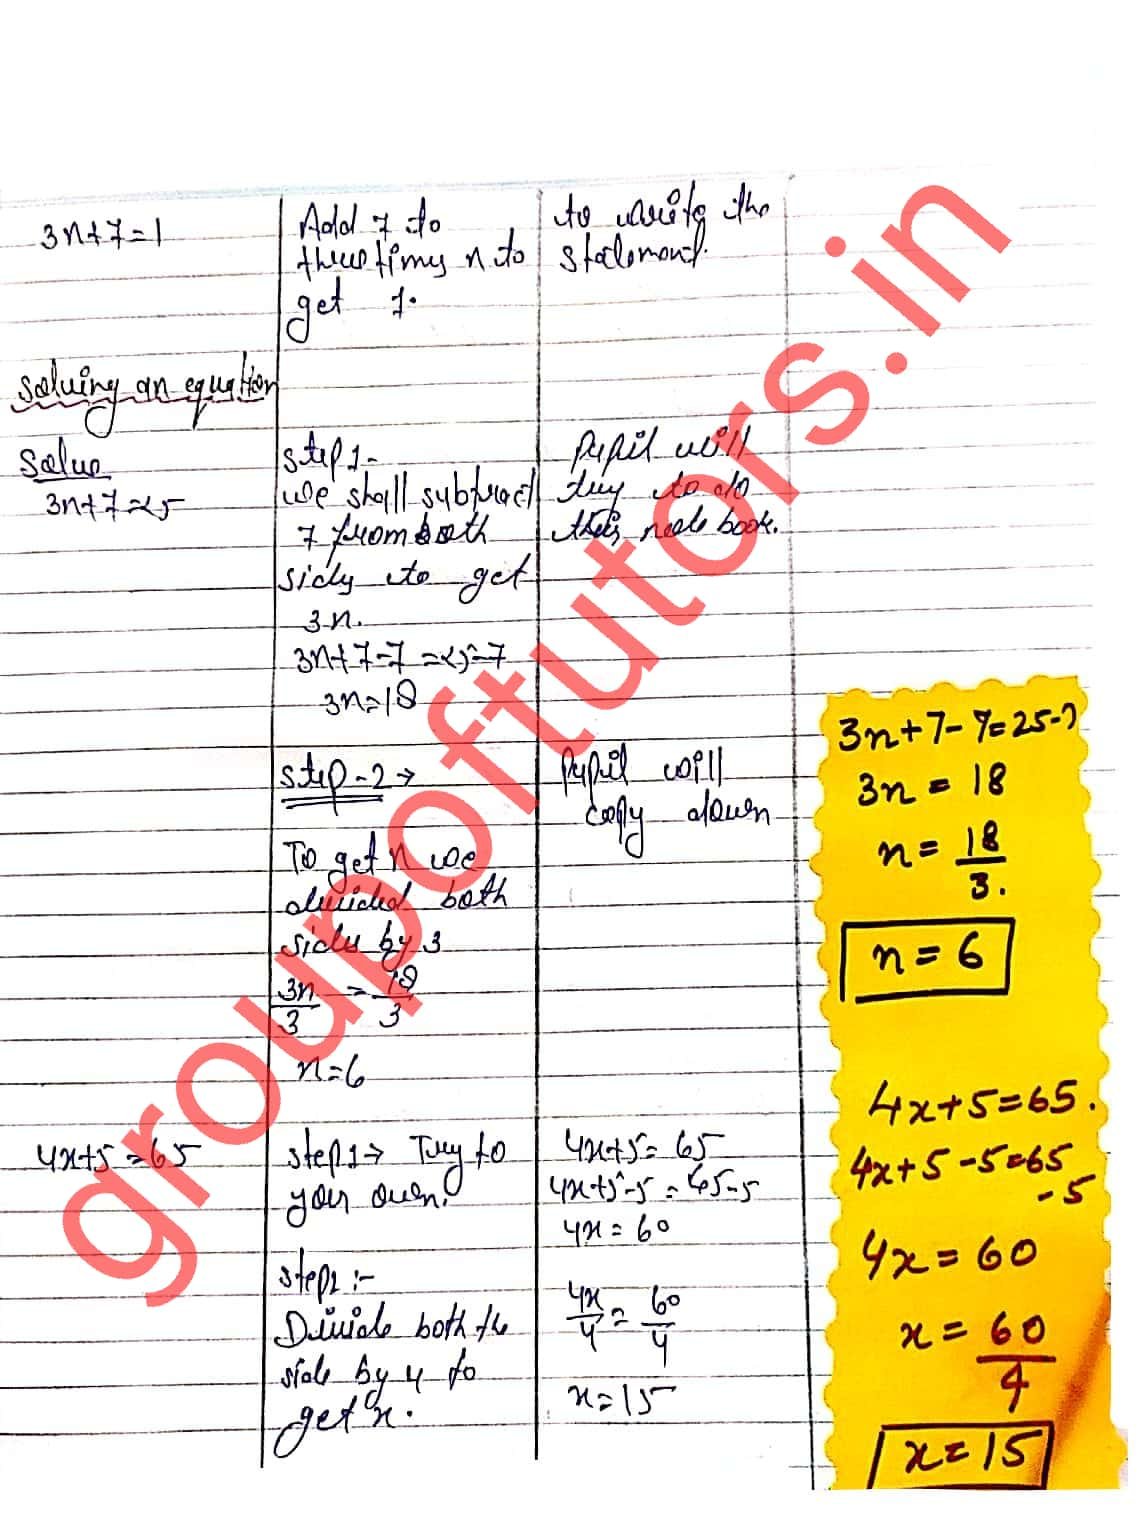 3n+7=1
Add 7 to
three times n to
get 1.
to write the
statement.
Solving an equation
Solve
3n+7=25
step 1-
we shall subtract
7 from both
sides to get
3n.
3n+7-7=25-7
3n=18
Pupil will
try to do
this note book.
step-2→
To get n we
divided both
sides by 3
3n/3 = 18/3
n=6
Pupil will
copy down
4x+5=65
step1→ Try to
your own.
step2:-
Divide both the
side by 4 to
get x.
4x+5=65
4x+5-5=65-5
4x=60
4x/4=60/4
x=15
3n+7-7=25-7
3n=18
n=18/3.
n=6
4x+5=65.
4x+5-5=65
-5
4x=60
x=60/4
x=15
groupoftutors.in